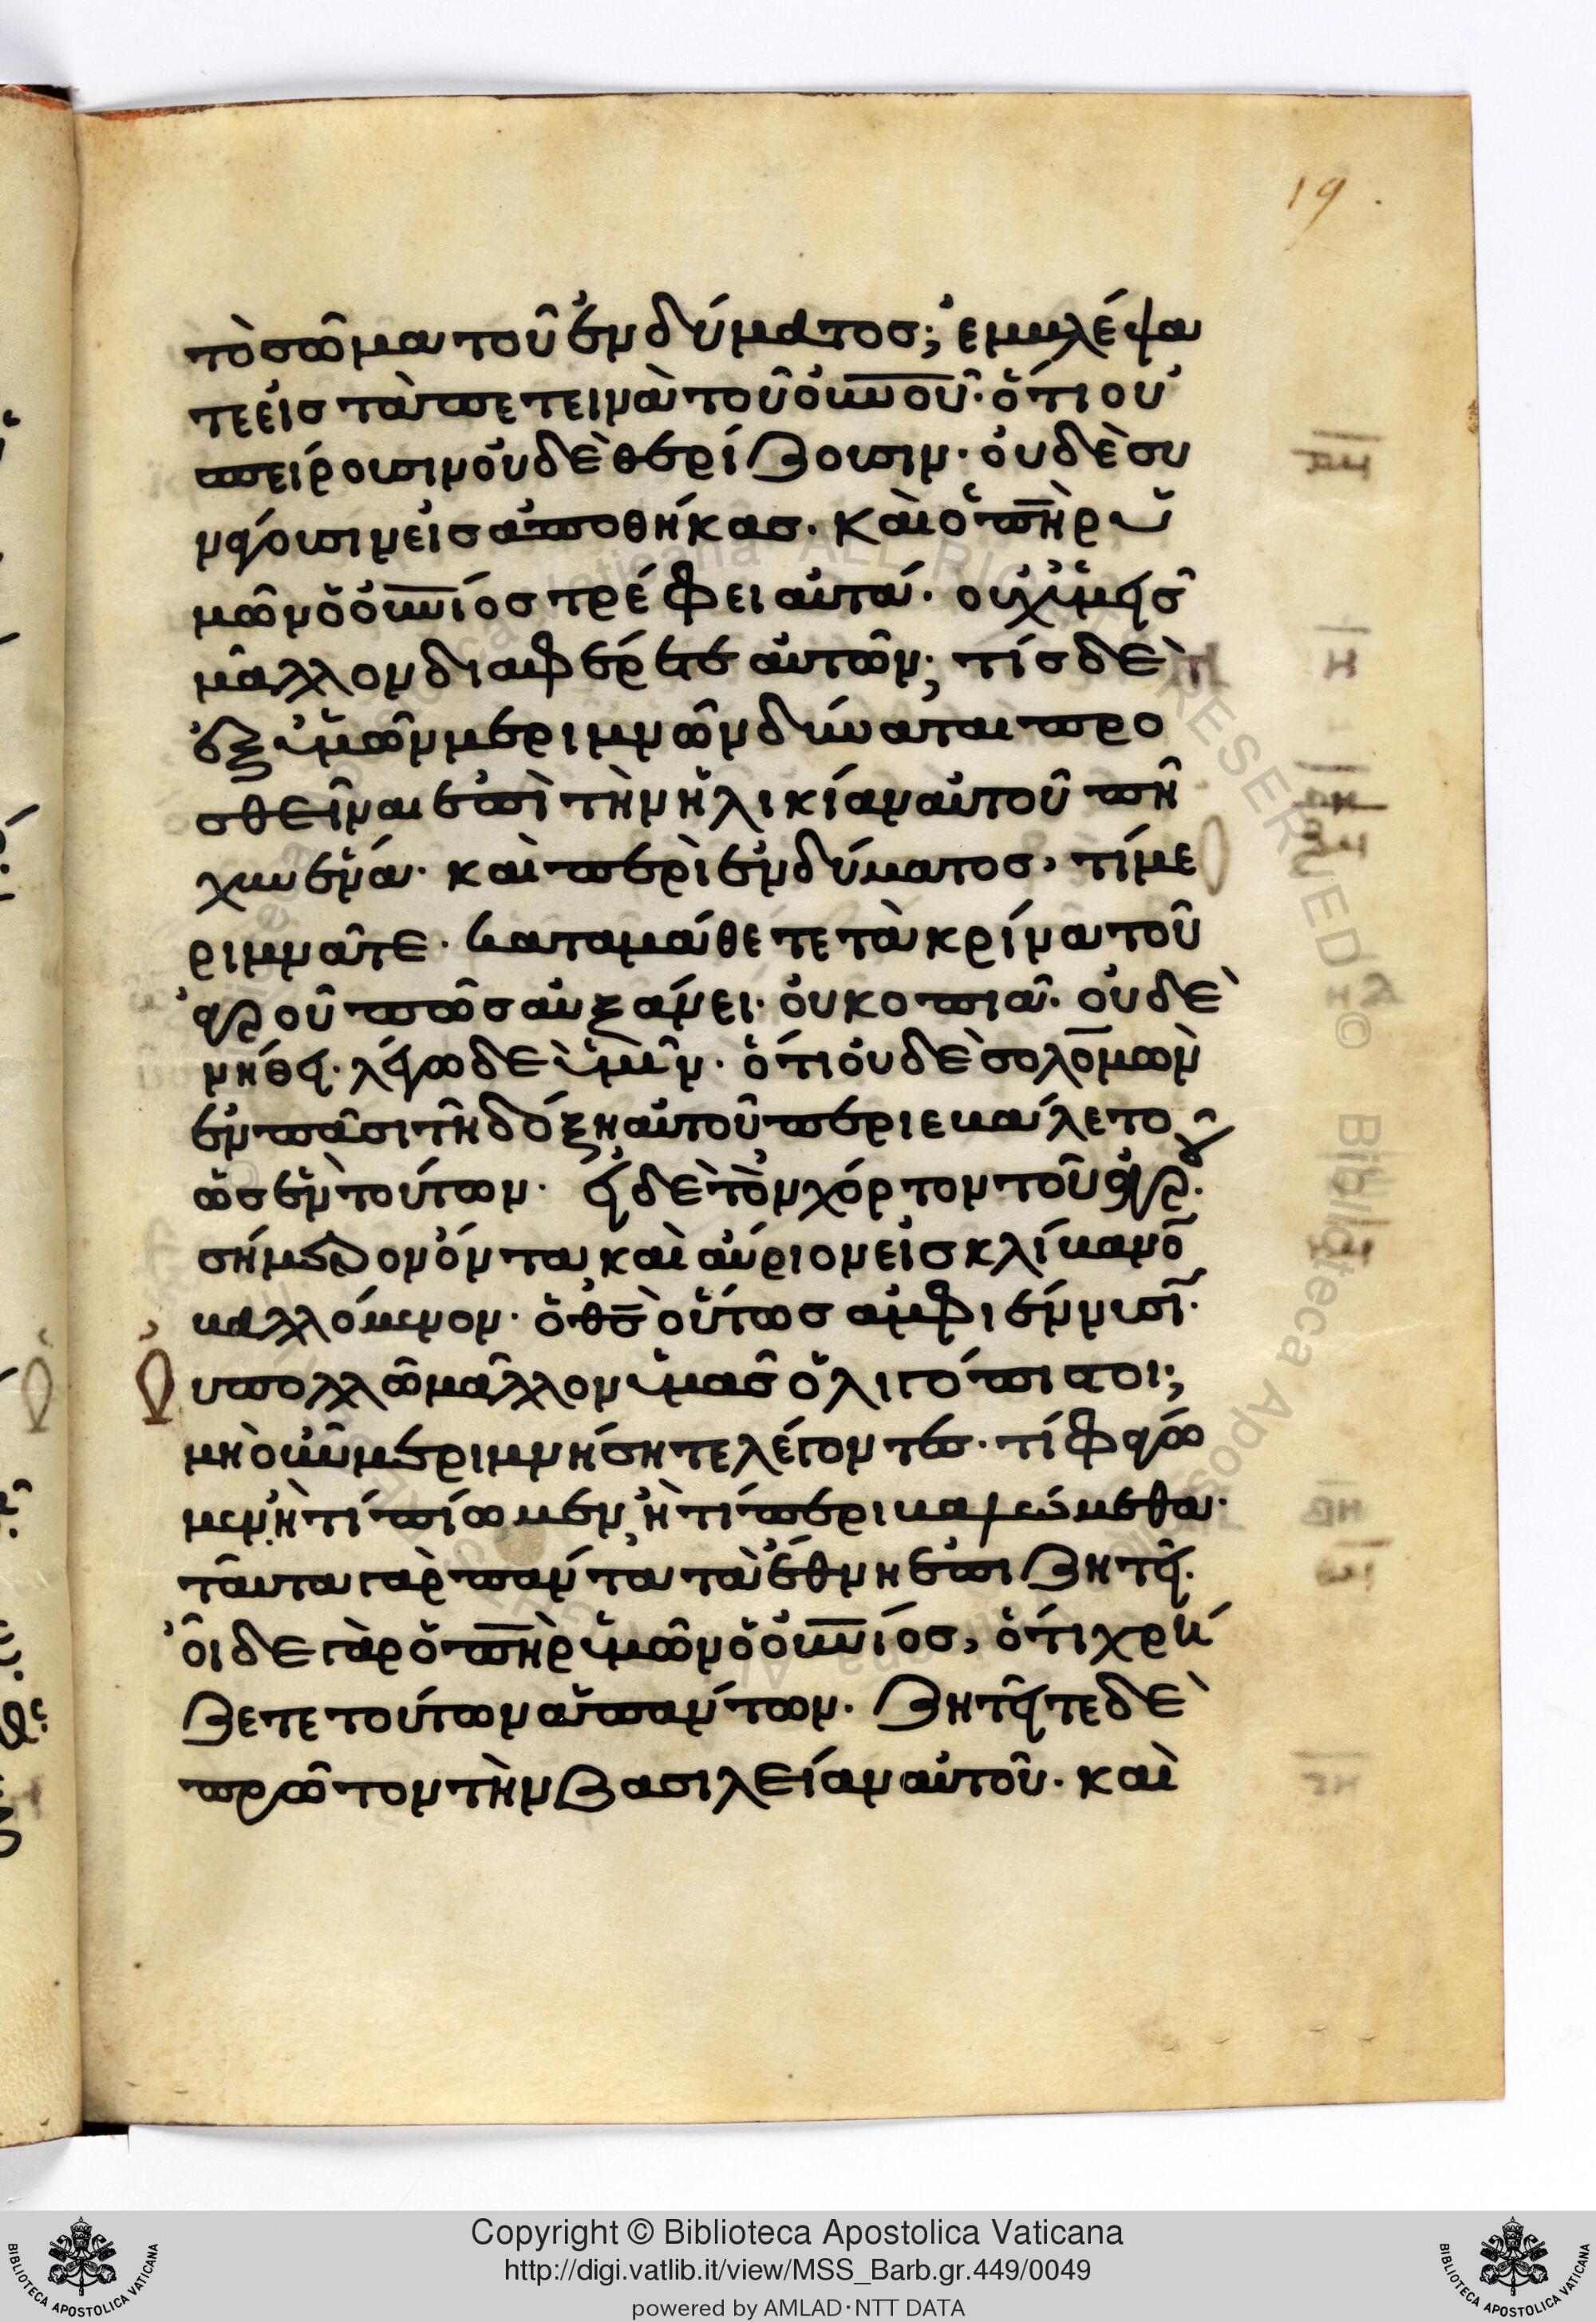 19.
τὸ σῶμα τοῦ ἐνδύματος; ἐμβλέψα
τε εἰς τὰ πετεινὰ τοῦ οὐνοῦ· ὅτι οὐ
σπείρουσιν οὐδὲ θερίζουσιν· οὐδὲ συ
νάγουσιν εἰς ἀποθήκας· καὶ ὁ πηρ ὑ
μῶν ὁ οὐνιος τρέφει αὐτά· οὐχ ὑμεῖς
μᾶλλον διαφέρετε αὐτῶν; τίς δὲ
ἐξ ὑμῶν μεριμνῶν δύναται προ
σθεῖναι ἐπὶ τὴν ἡλικίαν αὐτοῦ πῆ
χυν ἕνα· καὶ περὶ ἐνδύματος, τί με
ριμνᾶτε· καταμάθετε τὰ κρίνα τοῦ
ἀγροῦ πῶς αὐξάνει· οὐ κοπιᾶ· οὐδὲ
νήθει· λέγω δὲ ὑμῖν· ὅτι οὐδὲ σολομὼν
ἐν πάσῃ τῇ δόξῃ αὐτοῦ περιεβάλετο
ὡς ἓν τούτων· εἰ δὲ τὸν χόρτον τοῦ ἀγροῦ·
σήμερον ὄντα καὶ αὔριον εἰς κλίβανον
βαλλόμενον· ὁ θς οὕτως ἀμφιέννυσιν·
οὐ πολλῶ μᾶλλον ὑμᾶς ὀλιγόπιστοι;
μὴ οὖν μεριμνήσητε λέγοντες· τί φάγω
μεν ἢ τί πίωμεν, ἢ τί περιβαλώμεθα·
ταῦτα γὰρ πάντα τὰ ἔθνη ἐπιζητεῖ·
οἶδε γὰρ ὁ πηρ ὑμῶν ὁ οὐνιος, ὅτι χρή
ζετε τούτων ἁπάντων· ζητεῖτε δὲ
πρῶτον τὴν βασιλείαν αὐτοῦ· καὶ
Copyright © Biblioteca Apostolica Vaticana
http://digi.vatlib.it/view/MSS_Barb.gr.449/0049
powered by AMLAD·NTT DATA
BIBLIOTECA APOSTOLICA VATICANA
BIBLIOTECA APOSTOLICA VATICANA